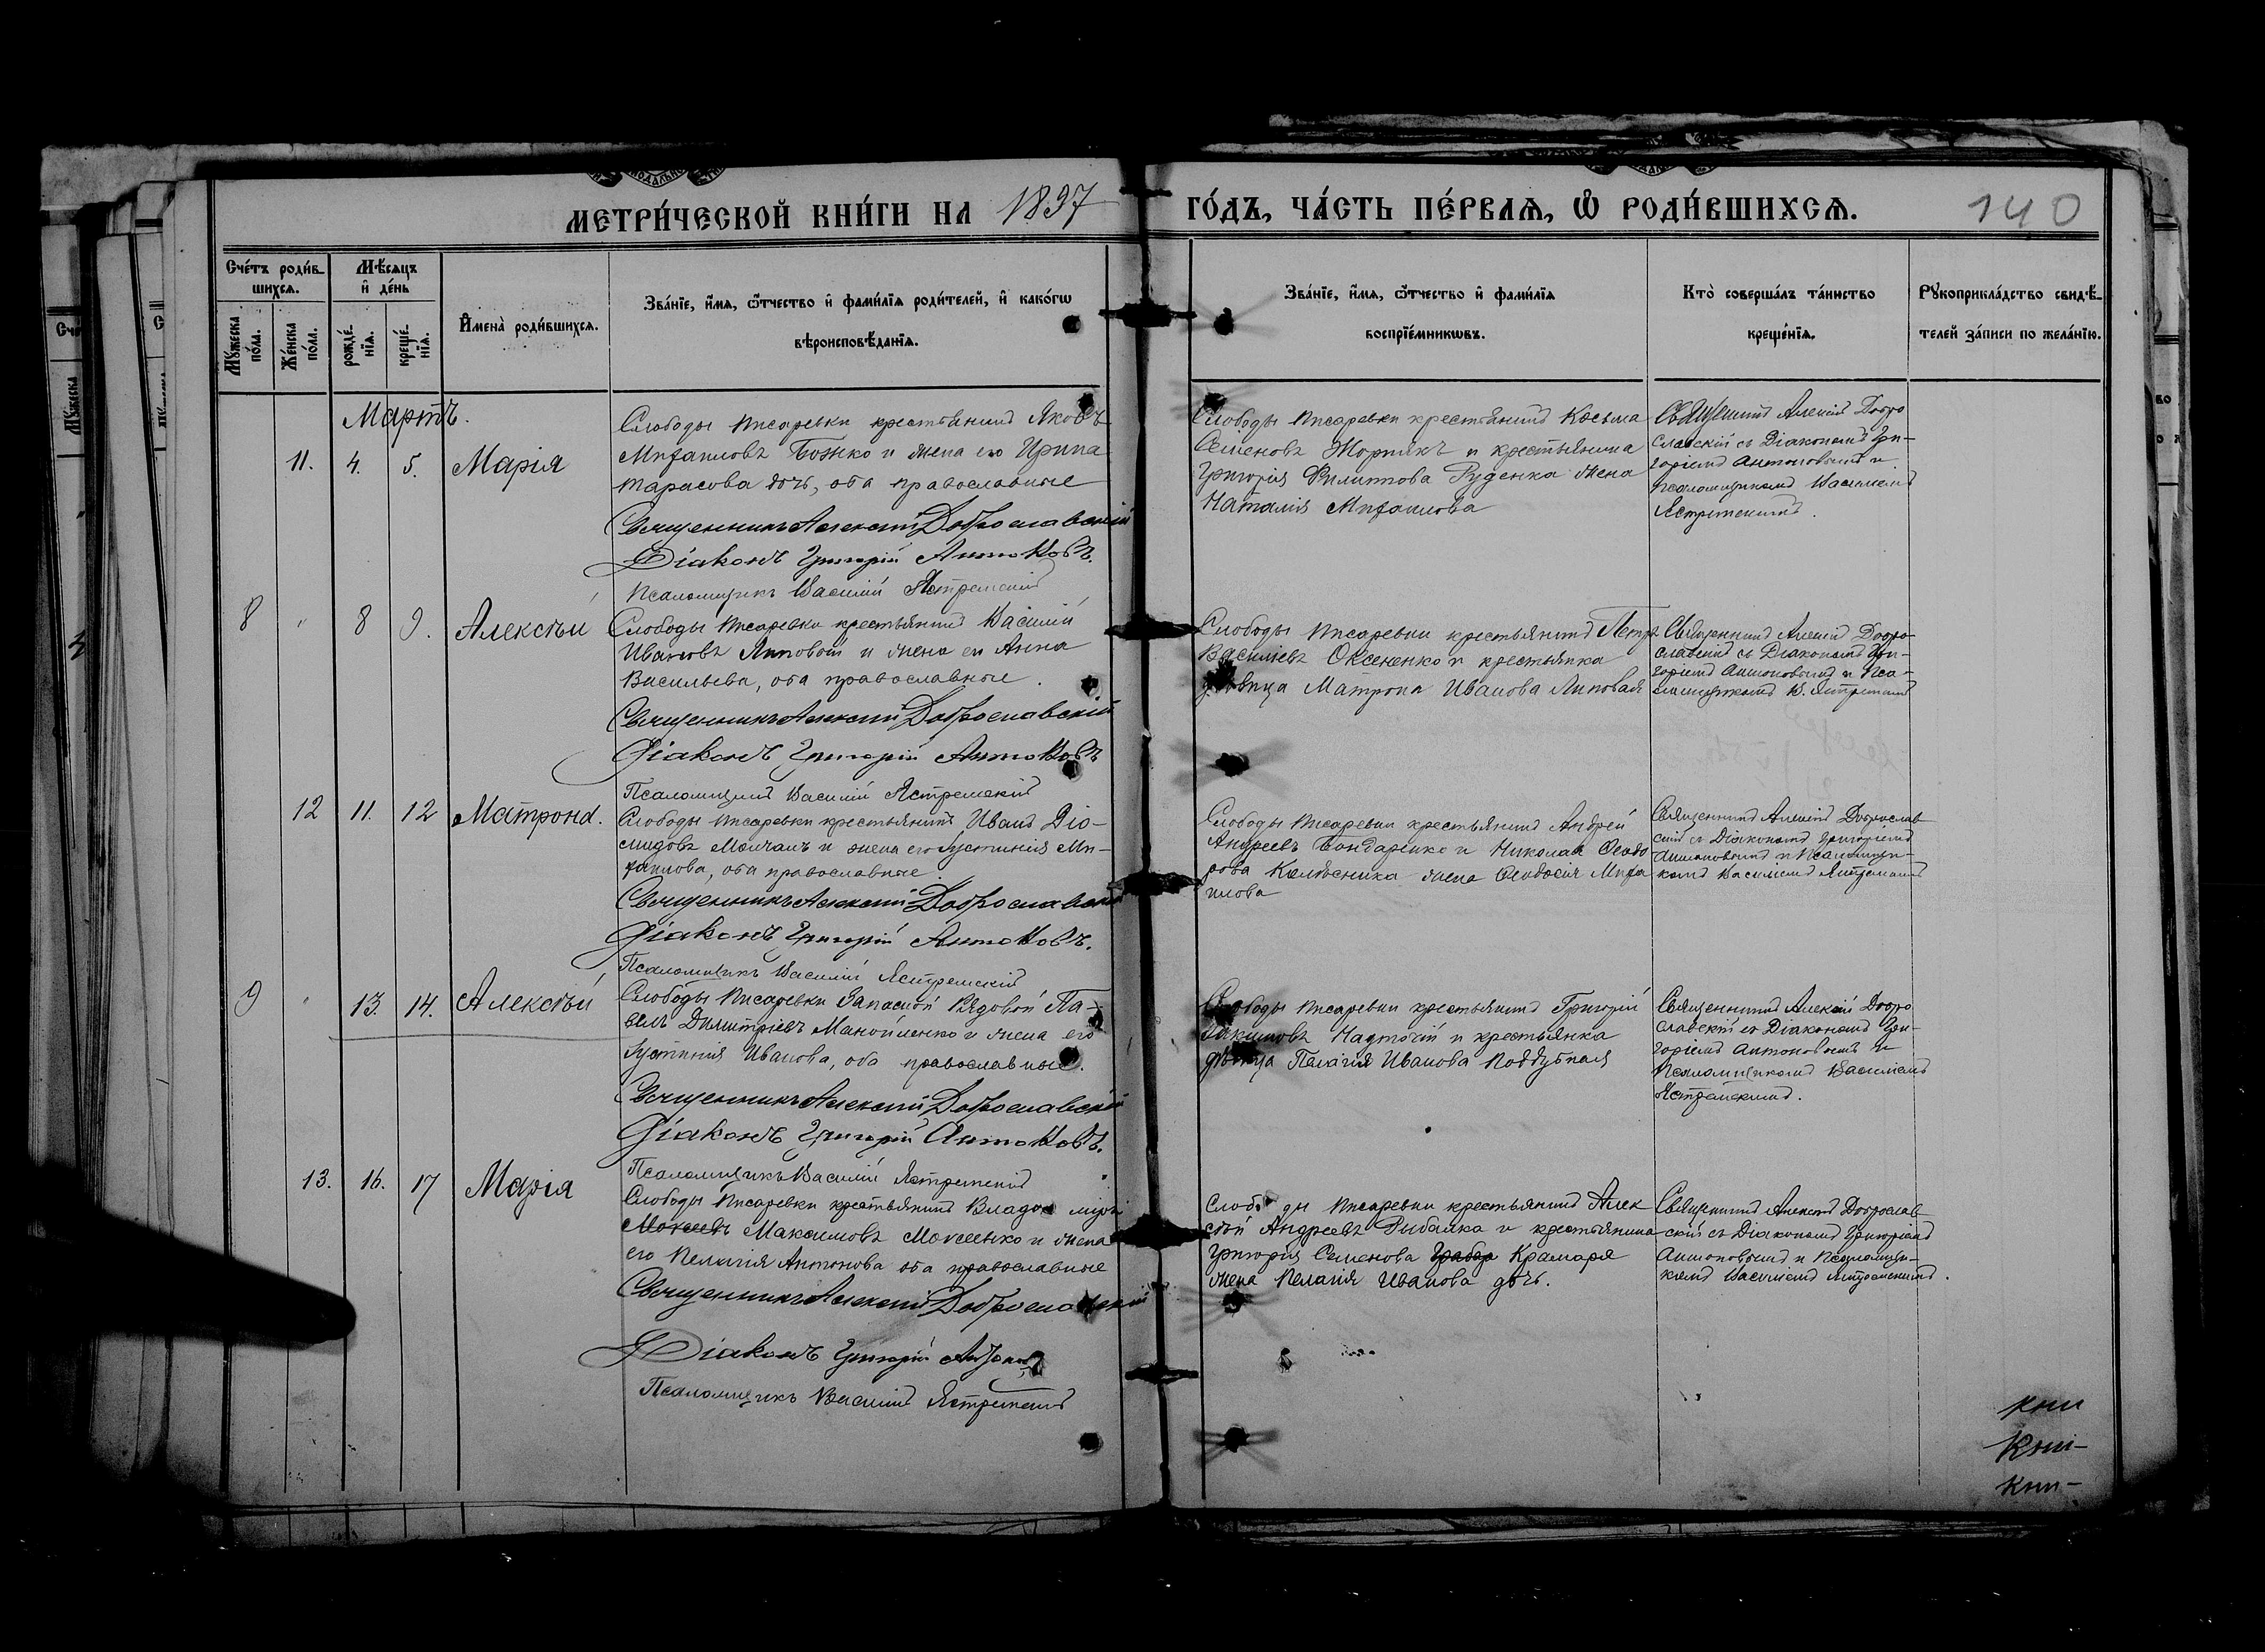 МЕТРИ́ЧЕСКОЙ КНИ́ГИ НА 1897 ГО́ДЪ, ЧА́СТЬ ПЕ́РВАЯ, Ѿ РОДИ́ВШИХСЯ.
140
Сче́тъ роди́вшихся.
Мꙋ́жеска по́ла.
Же́нска по́ла.
Мѣ́сяцъ и҆ де́нь
рожде́нїя.
креще́нїя.
И҆мена̀ роди́вшихся.
Зва́нїе, и҆́мя, ѻ҆́тчество и҆ фами́лїя роди́телей, и҆ како́гѡ
вѣроисповѣ́данїя.
Зва́нїе, и҆́мя, ѻ҆́тчество и҆ фами́лїя
воспрїе́мникѡвъ.
Кто̀ соверша́лъ та́инство
креще́нїя.
Рꙋкоприкла́дство свидѣ́-
телей за́писи по жела́нїю.
Мартъ.
11. 4. 5. Марія
Слободы Писаревки крестьянинъ Яковъ
Михаиловъ Божко и жена его Ирина
Тарасова дочь, оба православные
Священникъ Алексій Доброславскій
Діаконъ Григорій Антоновъ.
Псаломщикъ Василій Ястремскій
Слободы Писаревки крестьянинъ Косьма
Семеновъ и крестьянина
Григорія Филиппова Руденка жена
Наталія Михаилова
Священникъ Алексій Добро
славскій съ Діакономъ Гри-
горіемъ Антоновымъ и
псаломщикомъ Василіемъ
Ястремскимъ.
8 " 8 9. Алексѣй
Слободы Писаревки крестьянинъ Василій
Ивановъ Липовой и жена его Анна
Васильева, оба православные.
Священникъ Алексій Доброславскій
Діаконъ Григорій Антоновъ
Псаломщикъ Василій Ястремскій
Слободы Писаревки крестьянинъ Петръ
Василіевъ Оксененко и крестьянка
дѣвица Матрона Иванова Липовая
Священникъ Алексій Добро
славскій съ Діакономъ Гри-
горіемъ Антоновымъ и Пса-
ломщикомъ В. Ястремскимъ
12 11. 12 Матрона.
Слободы Писаревки крестьянинъ Иванъ Діо-
мидовъ Молчанъ и жена его Іустинія Ми-
хаилова, оба православные.
Священникъ Алексій Доброславскій
Діаконъ Григорій Антоновъ.
Псаломщикъ Василій Ястремскій
Слободы Писаревки крестьянинъ Андрей
Андреевъ Бондаренко и Николая Ѳеодо
рова Колѣсника жена Ѳеодосія Миха
илова
Священникъ Алексій Доброслав
скій съ Діакономъ Григоріемъ
Антоновымъ и Псаломщи-
комъ Василіемъ Ястремскимъ
9 " 13. 14. Алексѣй
Слободы Писаревки Запасной Рядовой Па-
велъ Димитріевъ Манойленко и жена его
Іустинія Иванова, оба православные.
Священникъ Алексій Доброславскій
Діаконъ Григорій Антоновъ.
Псаломщикъ Василій Ястремскій
Слободы Писаревки крестьянинъ Григорій
Надточій и крестьянка
дѣвица Пелагія Иванова Поддубная
Священникъ Алексій Добро
славскій съ Діакономъ Гри-
горіемъ Антоновымъ и
Псаломщикомъ Василіемъ
Ястремскимъ.
13. 16. 17 Марія
Слободы Писаревки крестьянинъ Владиміръ
Моисеевъ Максимовъ Моисеенко и жена
его Пелагія Антонова оба православные
Священникъ Алексій Доброславскій
Діаконъ Григорій Антоновъ
Псаломщикъ Василій Ястремскій
Слободы Писаревки крестьянинъ Алек
сѣй Андреевъ Рыбалка и крестьянина
Григорія Семенова Грабар Крамаря
жена Пелагія Иванова дочь.
Священникъ Алексій Доброслав
скій съ Діакономъ Григоріемъ
Антоновымъ и Псаломщи-
комъ Василіемъ Ястремскимъ.
кни
Кни-
кни-